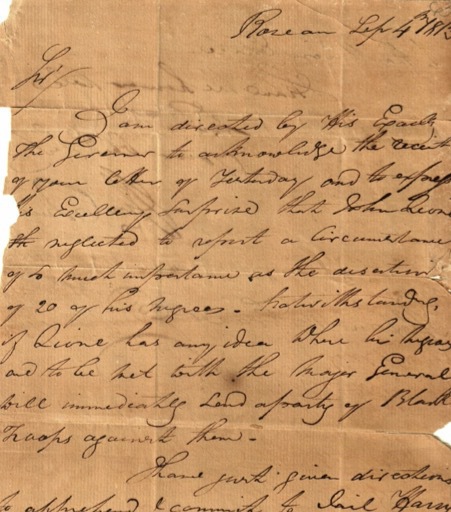 Roseau Sep 4th 1813
Sir/
I am directed by His Excelly
The Governor to acknowledge the receit
of your letter of Yesterday and to express
his Excellency Surprise that John Lione
neglected to report a Circumstance
of so much importance as the desertion
of 20 of his Negroes - Notwithstanding,
if Lione has any idea where his Negroes
are to be met with the Major General
will immediately send a party of Black
Troops against them -
I have just given directions
to apprehend & commit to Jail